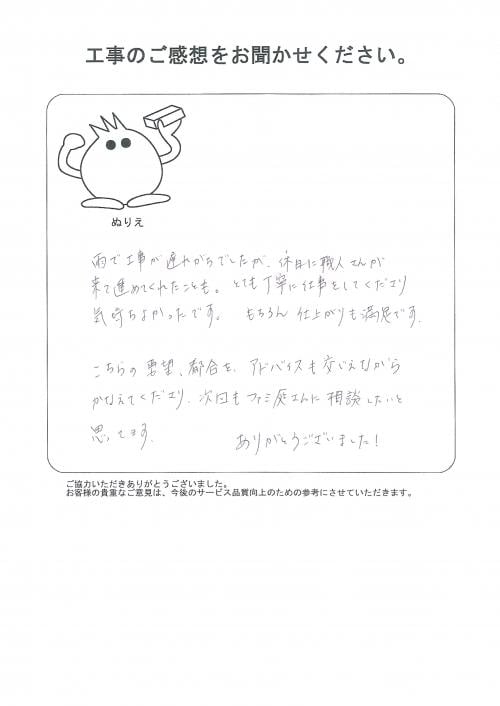 工事のご感想をお聞かせください。
ぬりえ
雨で工事が遅れがちでしたが、休日に職人さんが
来て進めてくれたことも。とても丁寧に仕事をしてくださり
気持ちよかったです。 もちろん 仕上がりも満足です。
こちらの要望、都合を、アドバイスも交じえながら
かなえてくださり、次回もファミ庭さんに相談したいと
思ってます。 ありがとうございました！
ご協力いただきありがとうございました。
お客様の貴重なご意見は、今後のサービス品質向上のための参考にさせていただきます。